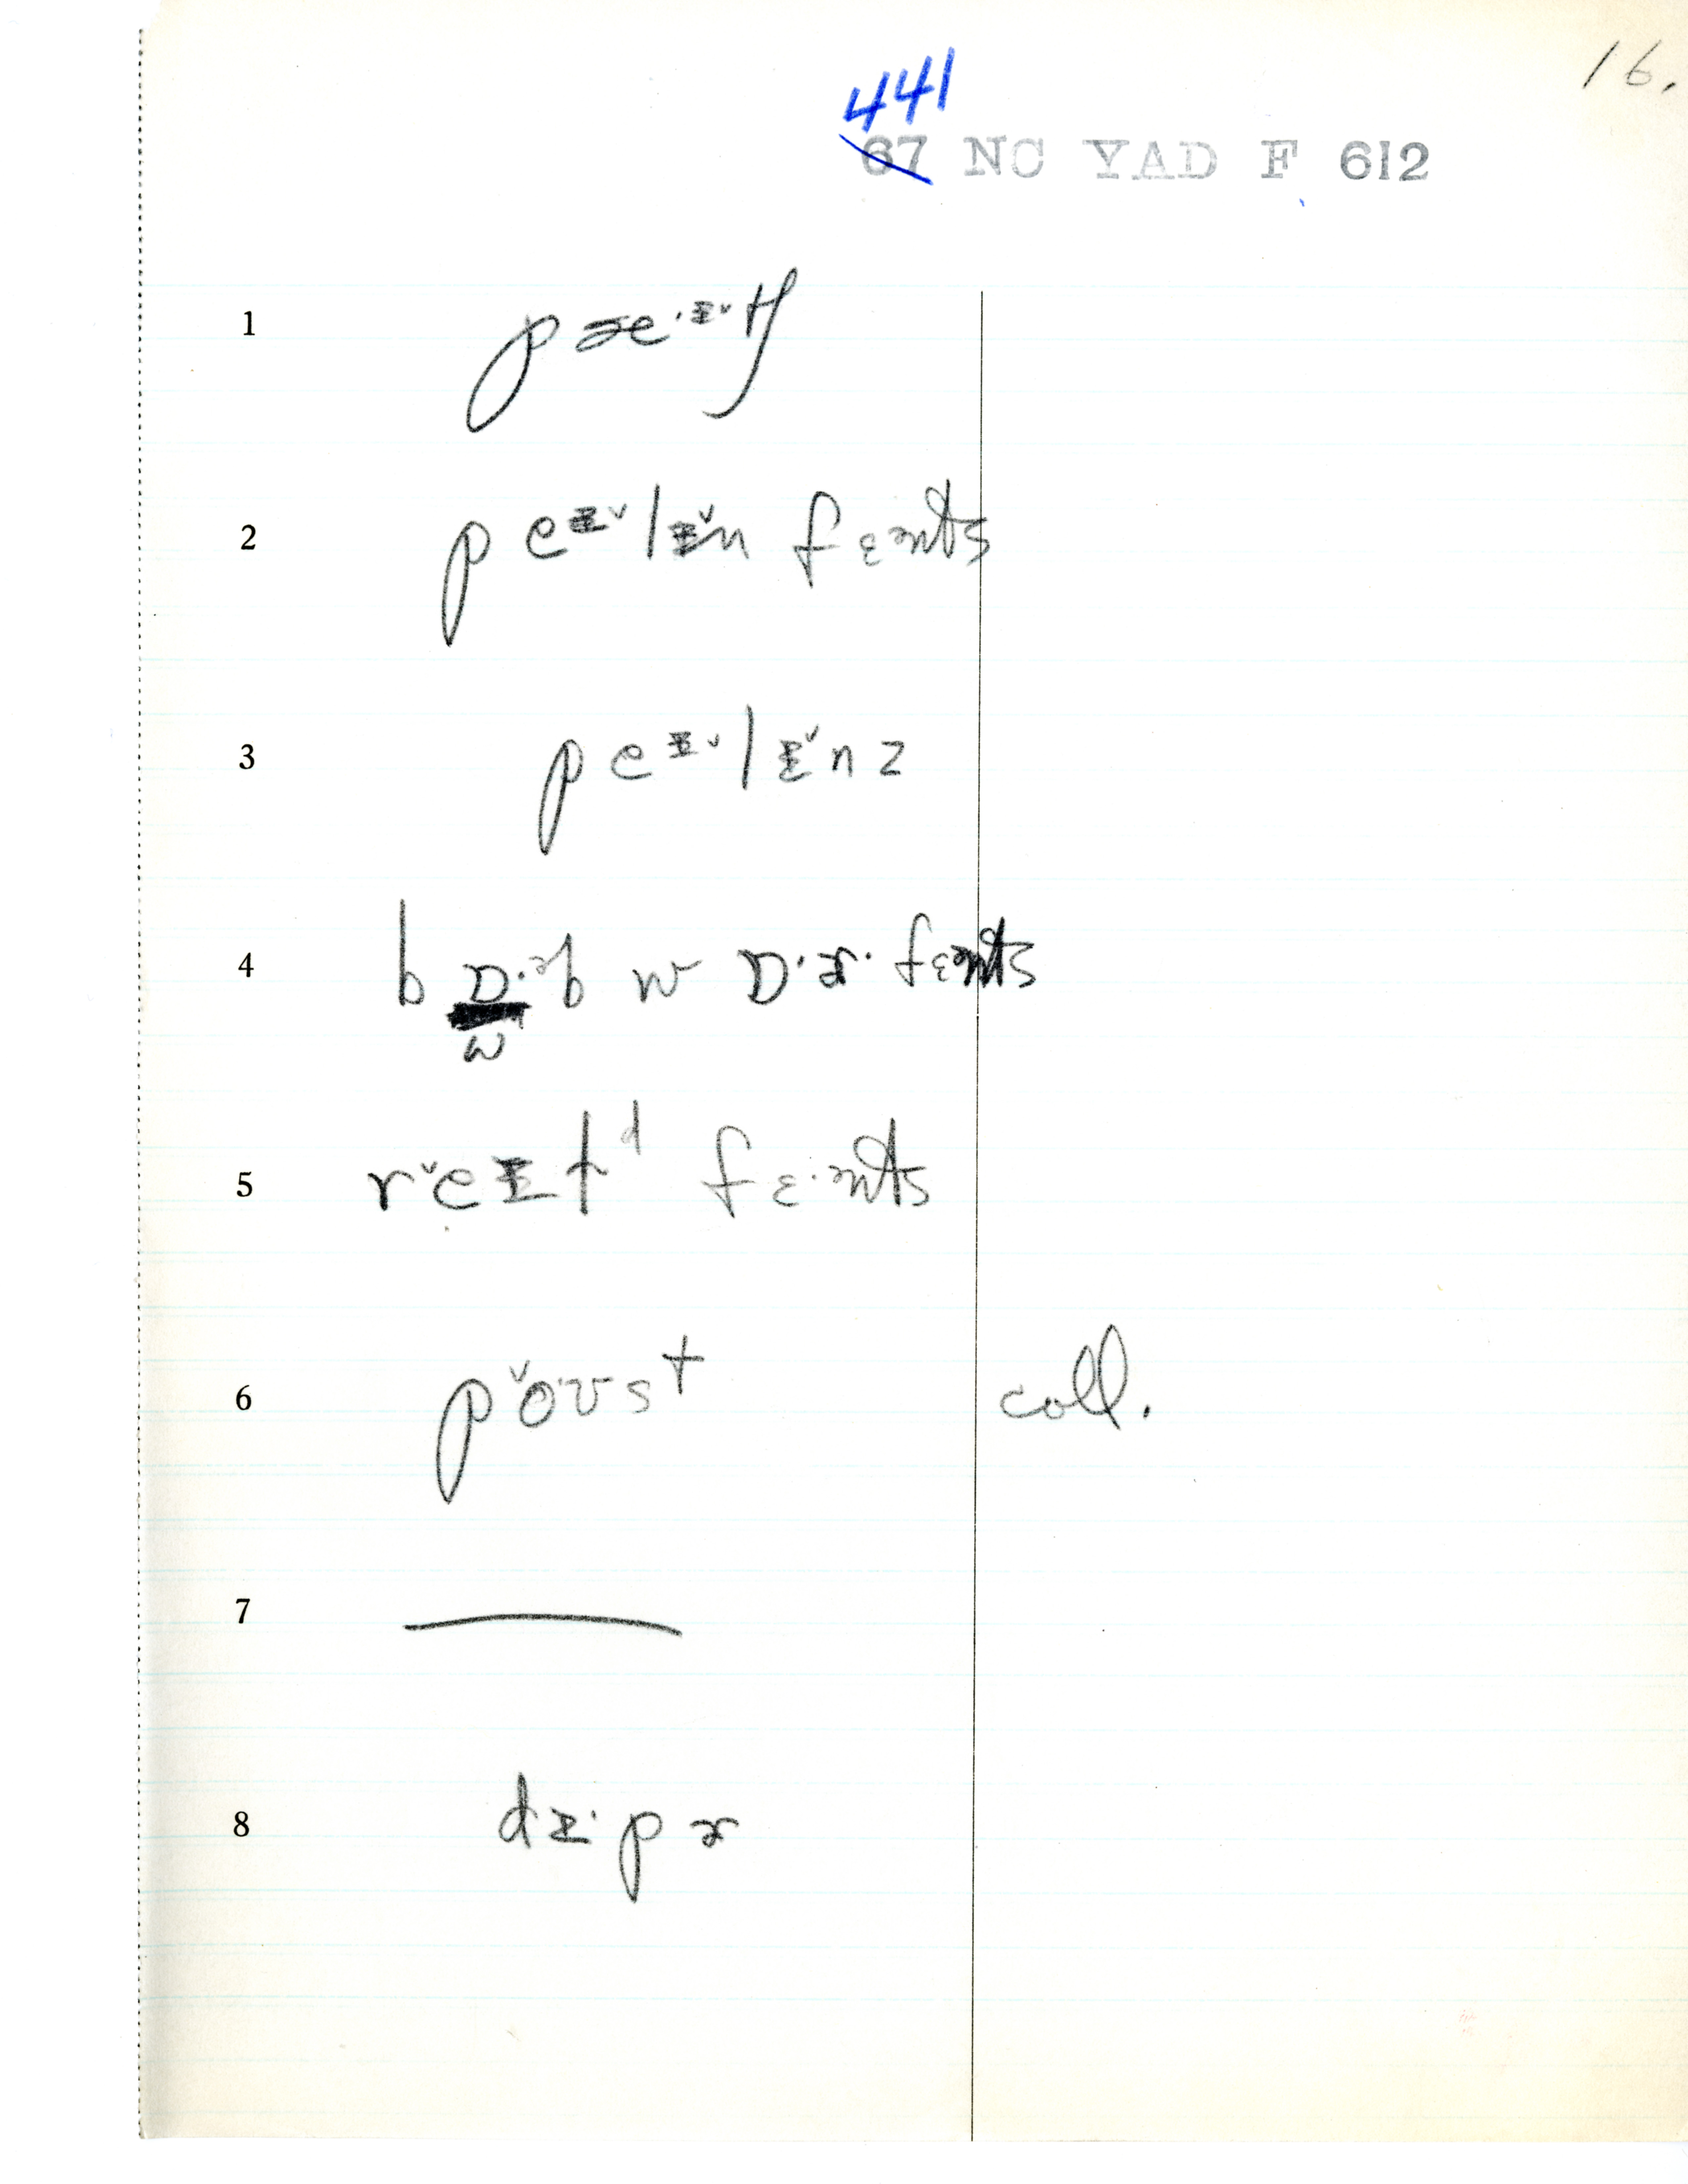 16.
441
67 NC YAD F 612
1 pæ·ɪ̵ˇtʃ
2 peɪ̵ˇlɪ̵ˇn fɛnts
3 peɪ̵ˇlɪ̵ˇnz
4 bɒ·ɚb wɒ·ɚ· fɛnts
ω
5 rˇeɪ̵td fɛ·nts
6 pˇoʊst coll.
7 —
8 dɪ̵·pɚ